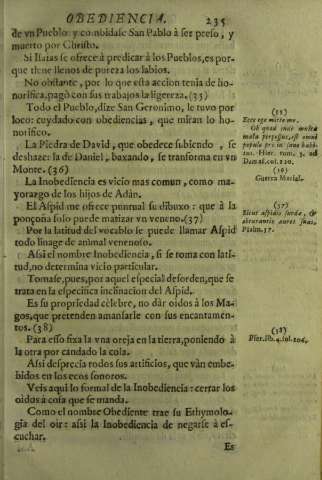 OBEDIENCIA. 235
de vn Pueblo y conbidase San Pablo à ser preso, y
muerto por Christo.
Si Isaias se ofrece à predicar à los Pueblos, es por-
que tiene llenos de pureza los labios.
No obstante, por lo que esta accion tenia de ho-
norifica, pagò con sus trabajos la ligereza. (35)
Todo el Pueblo, dize San Geronimo, le tuvo por
loco: cuydado con obediencias, que miran lo ho-
norifico.
La Piedra de David, que obedece subiendo, se
deshaze: la de Daniel, baxando, se transforma en vn
Monte. (36)
La Inobediencia es vicio mas comun, como ma-
yorazgo de los hijos de Adàn.
El Aspid me ofrece puntual su dibuxo: que à la
ponçoña solo puede matizar vn veneno. (37)
Por la latitud del vocablo se puede llamar Aspid
todo linage de animal venenoso.
Assi el nombre Inobediencia, si se toma con lati-
tud, no determina vicio particular.
Tomase, pues, por aquel especial desorden, que se
trata en la especifica inclinacion del Aspid.
Es su propriedad cèlebre, no dàr oidos à los Ma-
gos, que pretenden amansarle con sus encantamen-
tos. (38)
Para esso fixa la vna oreja en la tierra, poniendo à
la otra por candado la cola.
Assi desprecia todos sus artificios, que vàn embe-
bidos en los ecos sonoros.
Veis aqui lo formal de la Inobediencia: cerrar los
oidos à cosa que se manda.
Como el nombre Obediente trae su Ethymolo-
gia del oir: assi la Inobediencia de negarse à es-
cuchar.
Es
(35)
Ecce ego mitte me.
Ob quod inde multa
mala perpessus, est
populo pro in sano habi-
tus. Hier. tom. 3. ad
Damas. col. 120.
Guerra Marial.
(37)
Sicut aspidis surdæ, &
obturantis aures suas.
Psalm. 57.
(38)
Pier. lib. 4. fol. 106.